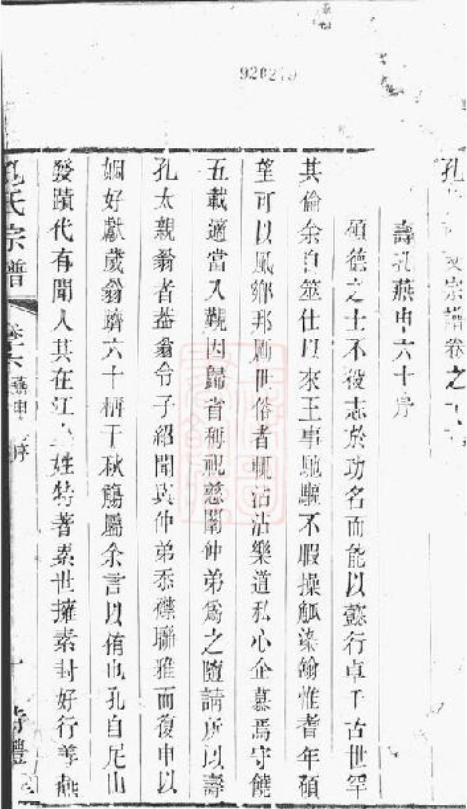 920219
孔氏 宗譜卷之六
壽孔燕申六十序
碩德之士不役志於功名而能以懿行卓千古世罕
其倫余自筮仕以來王事馳驅不暇操觚染翰惟耆年碩
望可以風鄉邦勵世俗者輒沾沾樂道私心企慕焉守饒
五載適當入覲因歸省稱祝慈闈仲弟為之隨請所以壽
孔太親翁者蓋翁令子紹聞與仲弟忝葭聯雅而復申以
姻好獻歲翁躋六十稱千秋觴屬余言以侑也孔自尼山
發蹟代有聞人其在江 姓特著累世擁素封好行善燕
孔氏宗譜 卷六 燕申 序 一 詩禮